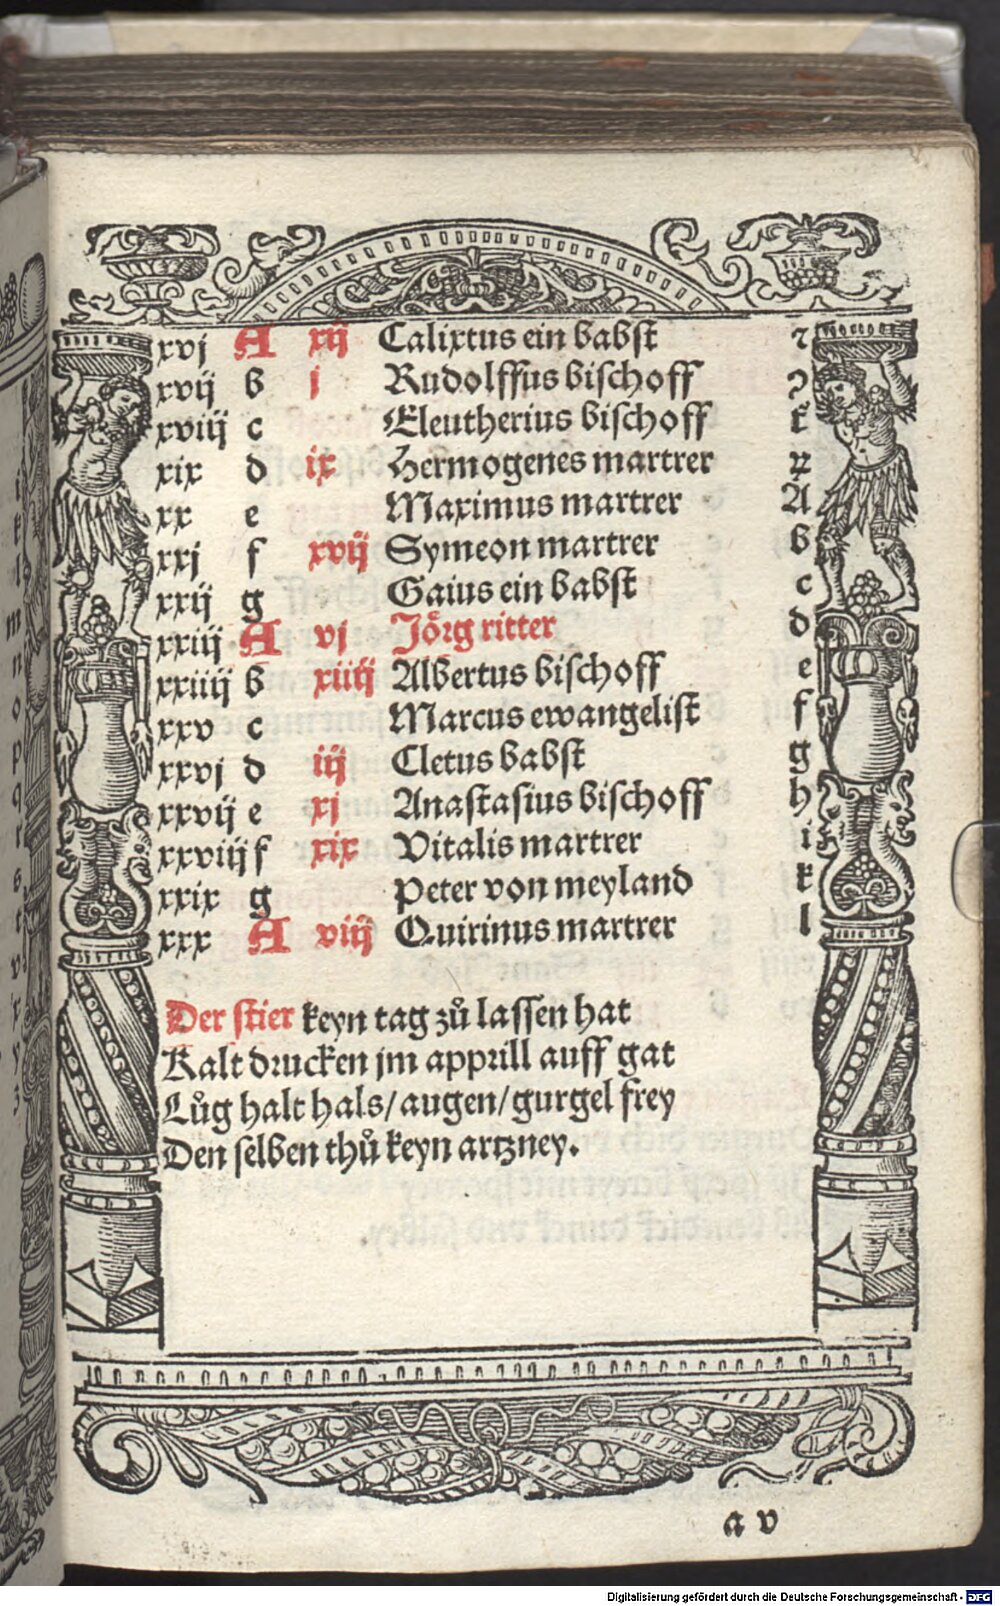 xvj A xij Calixtus ein babst ⁊
xvij b j Rudolffus bischoff ꝯ
xviij c Eleutherius bischoff k
xix d ix Hermogenes martrer
xx e Maximus martrer A
xxj f xvij Symeon martrer b
xxij g Gaius ein babst c
xxiij A vj Jörg ritter d
xxiiij b xiiij Albertus bischoff e
xxv c Marcus ewangelist f
xxvj d iij Cletus babst g
xxvij e xj Anastasius bischoff h
xxviij f xix Vitalis martrer i
xxix g Peter von meyland k
xxx A viij Quirinus martrer l
Der stier keyn tag zů lassen hat
Kalt drucken jm apprill auff gat
Lůg halt hals/augen/gurgel frey
Den selben thů keyn artzney.
a v
Digitalisierung gefördert durch die Deutsche Forschungsgemeinschaft - DFG